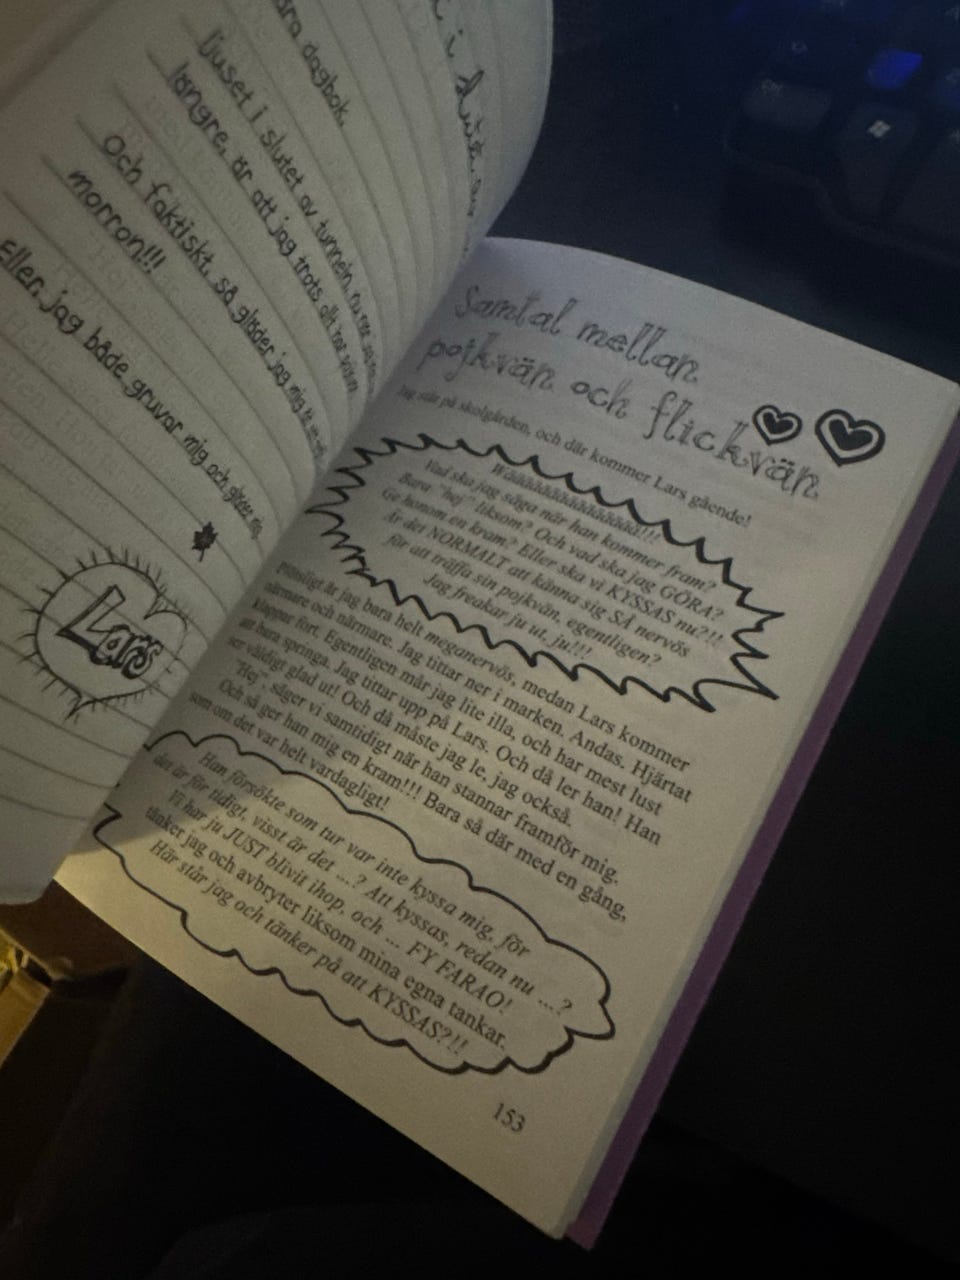 i slutet av
ära dagbok,
ljuset i slutet av tunneln, nu när jag
längre, är att jag trots allt har
Och faktiskt, så gläder jag mig
morron!!!
Eller, jag både gruvar mig och gläder
Lars
Samtal mellan
pojkvän och flickvän
Jag står på skolgården, och där kommer Lars gående!
Vad ska jag säga när han kommer fram?
Bara "hej" liksom? Och vad ska jag GÖRA?
Ge honom en kram? Eller ska vi KYSSAS nu?!!
Är det NORMALT att känna sig SÅ nervös
för att träffa sin pojkvän, egentligen?
Jag freakar ju ut, ju!!!
Plötsligt är jag bara helt meganervös, medan Lars kommer
närmare och närmare. Jag tittar ner i marken. Andas. Hjärtat
klappar fort. Egentligen mår jag lite illa, och har mest lust
att bara springa. Jag tittar upp på Lars. Och då ler han! Han
ser väldigt glad ut! Och då måste jag le, jag också.
"Hej", säger vi samtidigt när han stannar framför mig.
Och så ger han mig en kram!!! Bara så där med en gång,
som om det var helt vardagligt!
Han försökte som tur var inte kyssa mig, för
det är för tidigt, visst är det ...? Att kyssas, redan nu ...?
Vi har ju JUST blivit ihop, och ... FY FARAO!
tänker jag och avbryter liksom mina egna tankar.
Här står jag och tänker på att KYSSAS?!!
153